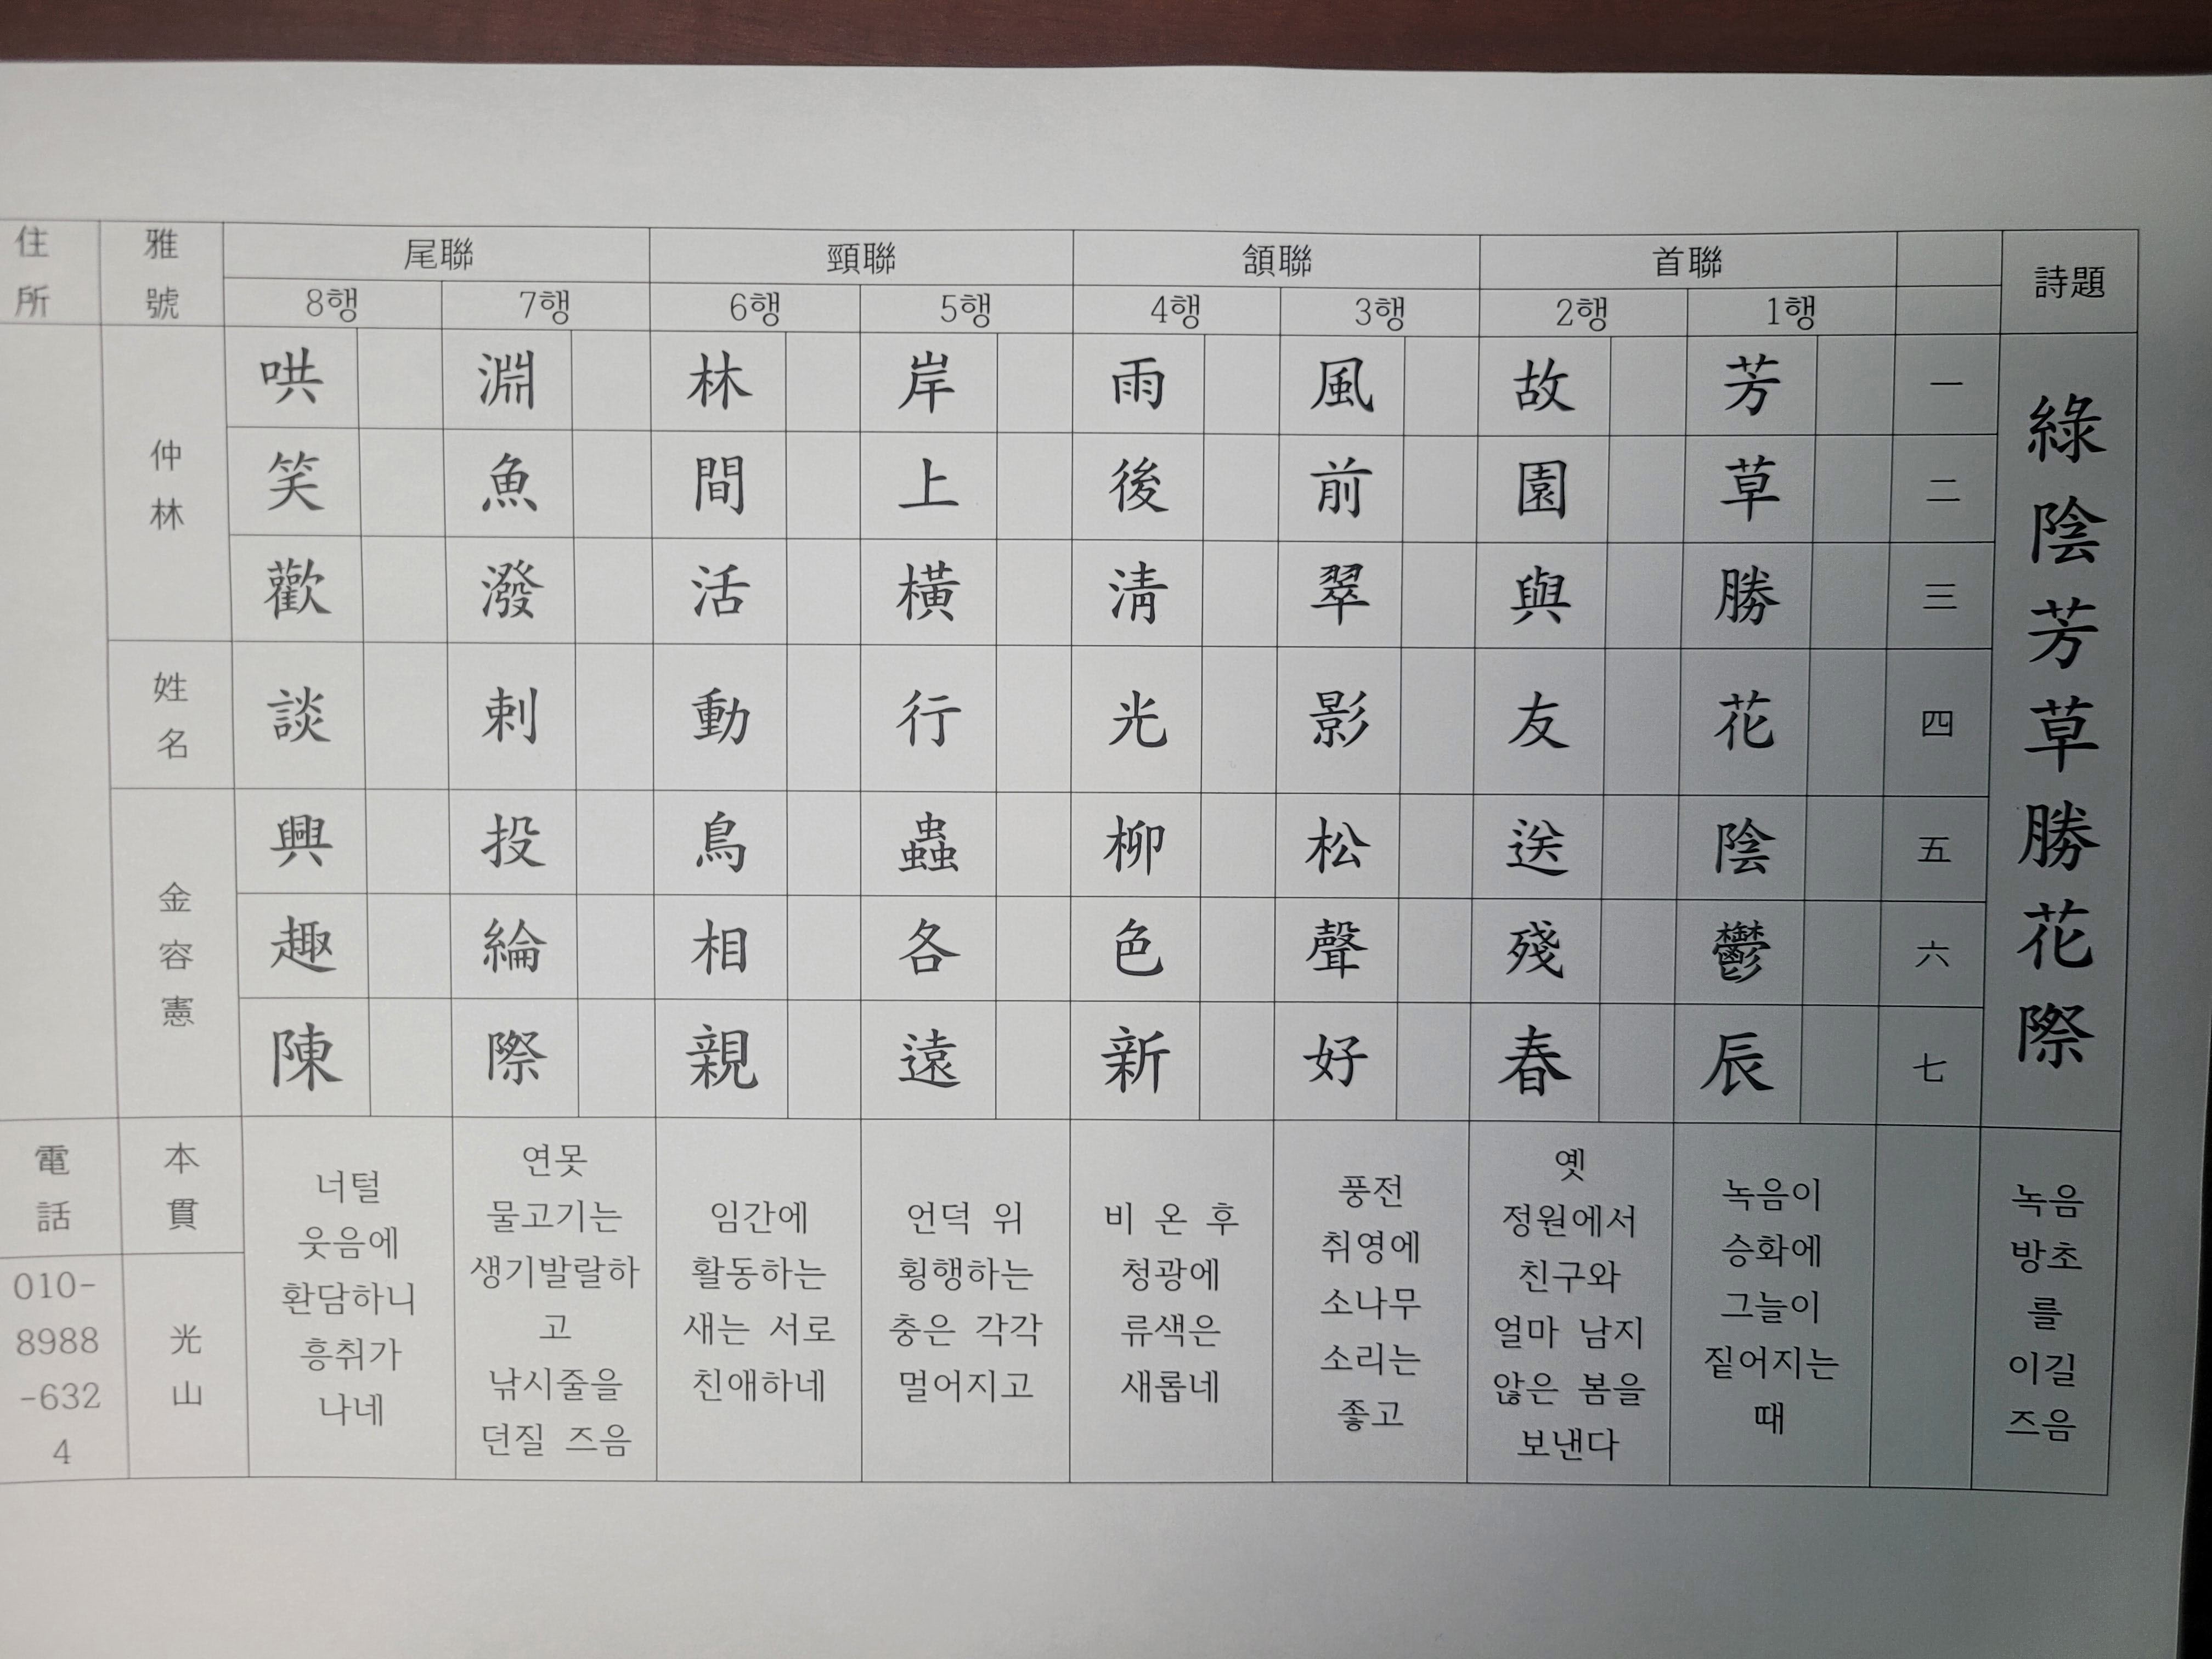 詩題
綠陰芳草勝花際
녹음
방초
를
이길
즈음
一
二
三
四
五
六
七
首聯
1행
芳草勝花陰鬱辰
녹음이
승화에
그늘이
짙어지는
때
2행
故園與友送殘春
옛
정원에서
친구와
얼마 남지
않은 봄을
보낸다
頷聯
3행
風前翠影松聲好
풍전
취영에
소나무
소리는
좋고
4행
雨後淸光柳色新
비 온 후
청광에
류색은
새롭네
頸聯
5행
岸上橫行蟲各遠
언덕 위
횡행하는
충은 각각
멀어지고
6행
林間活動鳥相親
임간에
활동하는
새는 서로
친애하네
尾聯
7행
淵魚潑剌投綸際
연못
물고기는
생기발랄하
고
낚시줄을
던질 즈음
8행
哄笑歡談興趣陳
너털
웃음에
환담하니
흥취가
나네
雅號
仲林
姓名
金容憲
本貫
光山
住所
電話
010-
8988
-632
4